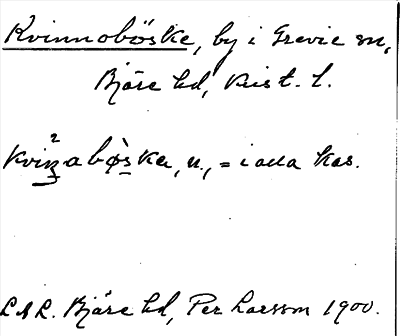 Kvinnoböske, by i Grevie sn,
Bjäre hd, Krist. l.
kvinabøska, n., = i alla kas.
Bjäre hd, Per Larsson 1900.